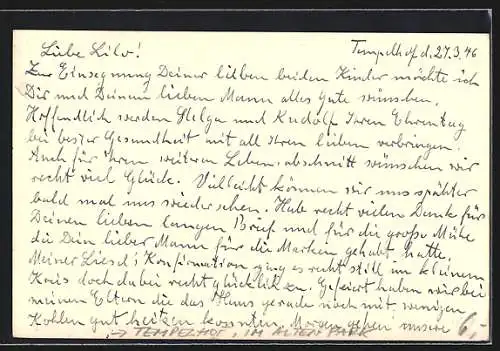 Tempelhof d. 27.3.46
Liebe Lilo!
Zur Einsegnung Deiner lieben beiden Kinder möchte ich
Dir und Deinem lieben Mann alles Gute wünschen.
Hoffentlich werden Helga und Rudolf Iren Ehrentag
bei bester Gesundheit mit all Iren lieben verbringen.
Auch für Iren weitren Lebensabschnitt wünschen wir
recht viel Glück. Vielleicht können wir uns spähter
bald mal uns wiedersehen. Hab recht vielen Dank für
Deinen lieben langen Brief und für die große Mühe
die Dein lieber Mann für die Marken gehabt hatte.
Meiner Konfirmation ging es recht still im kleinem
Kreis doch dabei recht glücklich zu. Gefeiert haben wir bei
meinen Eltern die das Haus gerade noch mit wenigen
Kohlen gut heitzen konnten. Morgen gehen unsere
→ TEMPELHOF, IM ALTEN PARK
6,-